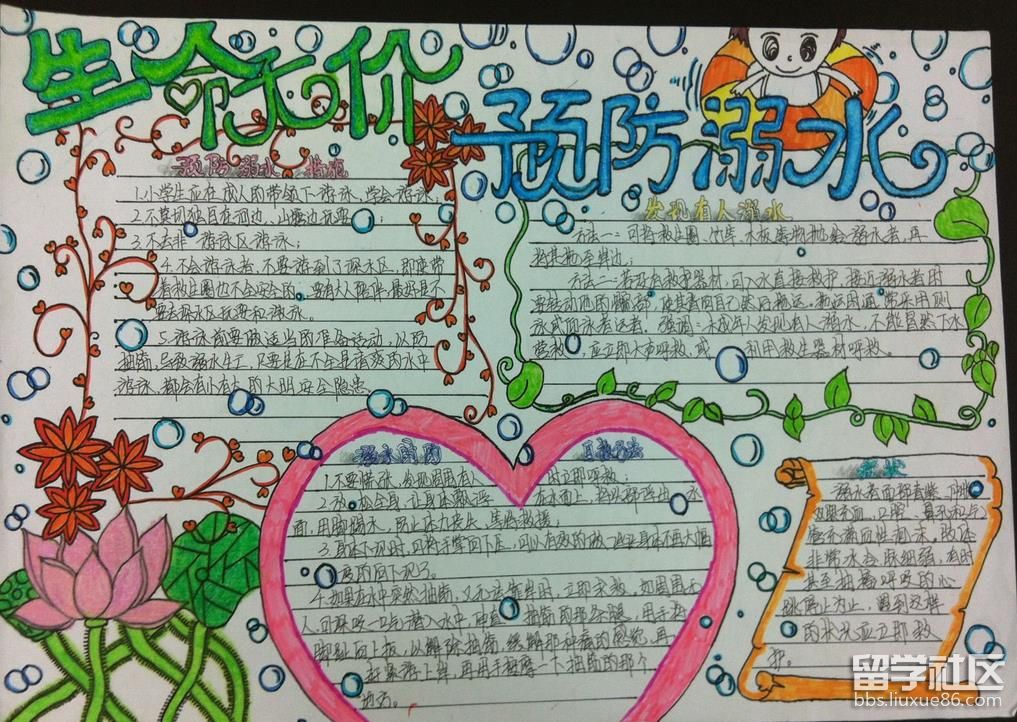 生命无价
预防溺水
预防溺水 措施
1.小学生应在成人的带领下游泳,学会游泳;
2.不要独自在河边、山塘边玩耍;
3.不去非游泳区游泳;
4.不会游泳者,不要游到了深水区,即使带
有救生圈也不会安全的。要有大人陪伴,最好是不
要去深水区玩耍和游泳。
5.游泳前要做适当的准备活动,以防
抽筋,导致溺水
游泳,都会有
发现有人溺水
方法一:可将救生圈、竹竿、木板等物抛给溺水者,再
将其拖至岸边;
方法二:若没有救护器材,可入水直接救护。接近溺水者时
要转动他的髋部,使其背向自己然后拖运。拖运时通常采用侧
泳或仰泳拖运法。强调:未成年人发现有人溺水,不能冒然下水
营救,应立即大声呼救,或利用救生器材呼救。
溺水时的
自救方法
1.不要慌张,发现周围有人时立即呼救;
2.放松全身,让身体飘浮在水面上,将头部浮出水
面,用脚踢水,防止体力丧失,等待救援;
3.身体下沉时,可将手掌向下压,
4.如果在水中突然抽筋,又无法靠岸时,立即求救。如周围无
人,可深吸一口气潜入水中,伸直抽筋的那条腿,用手将
脚趾向上扳,以解除抽筋。
部
地方。
症状
溺水者面部青紫、肿胀
双眼充血,口腔、鼻孔和气
管充满血性泡沫。肢体
非常冰冷,脉细弱,有时
甚至抽搐,呼吸的心
跳停止为止,遇到这样
的状况应立即救
护。
留学社区
bbs.liuxue86.com